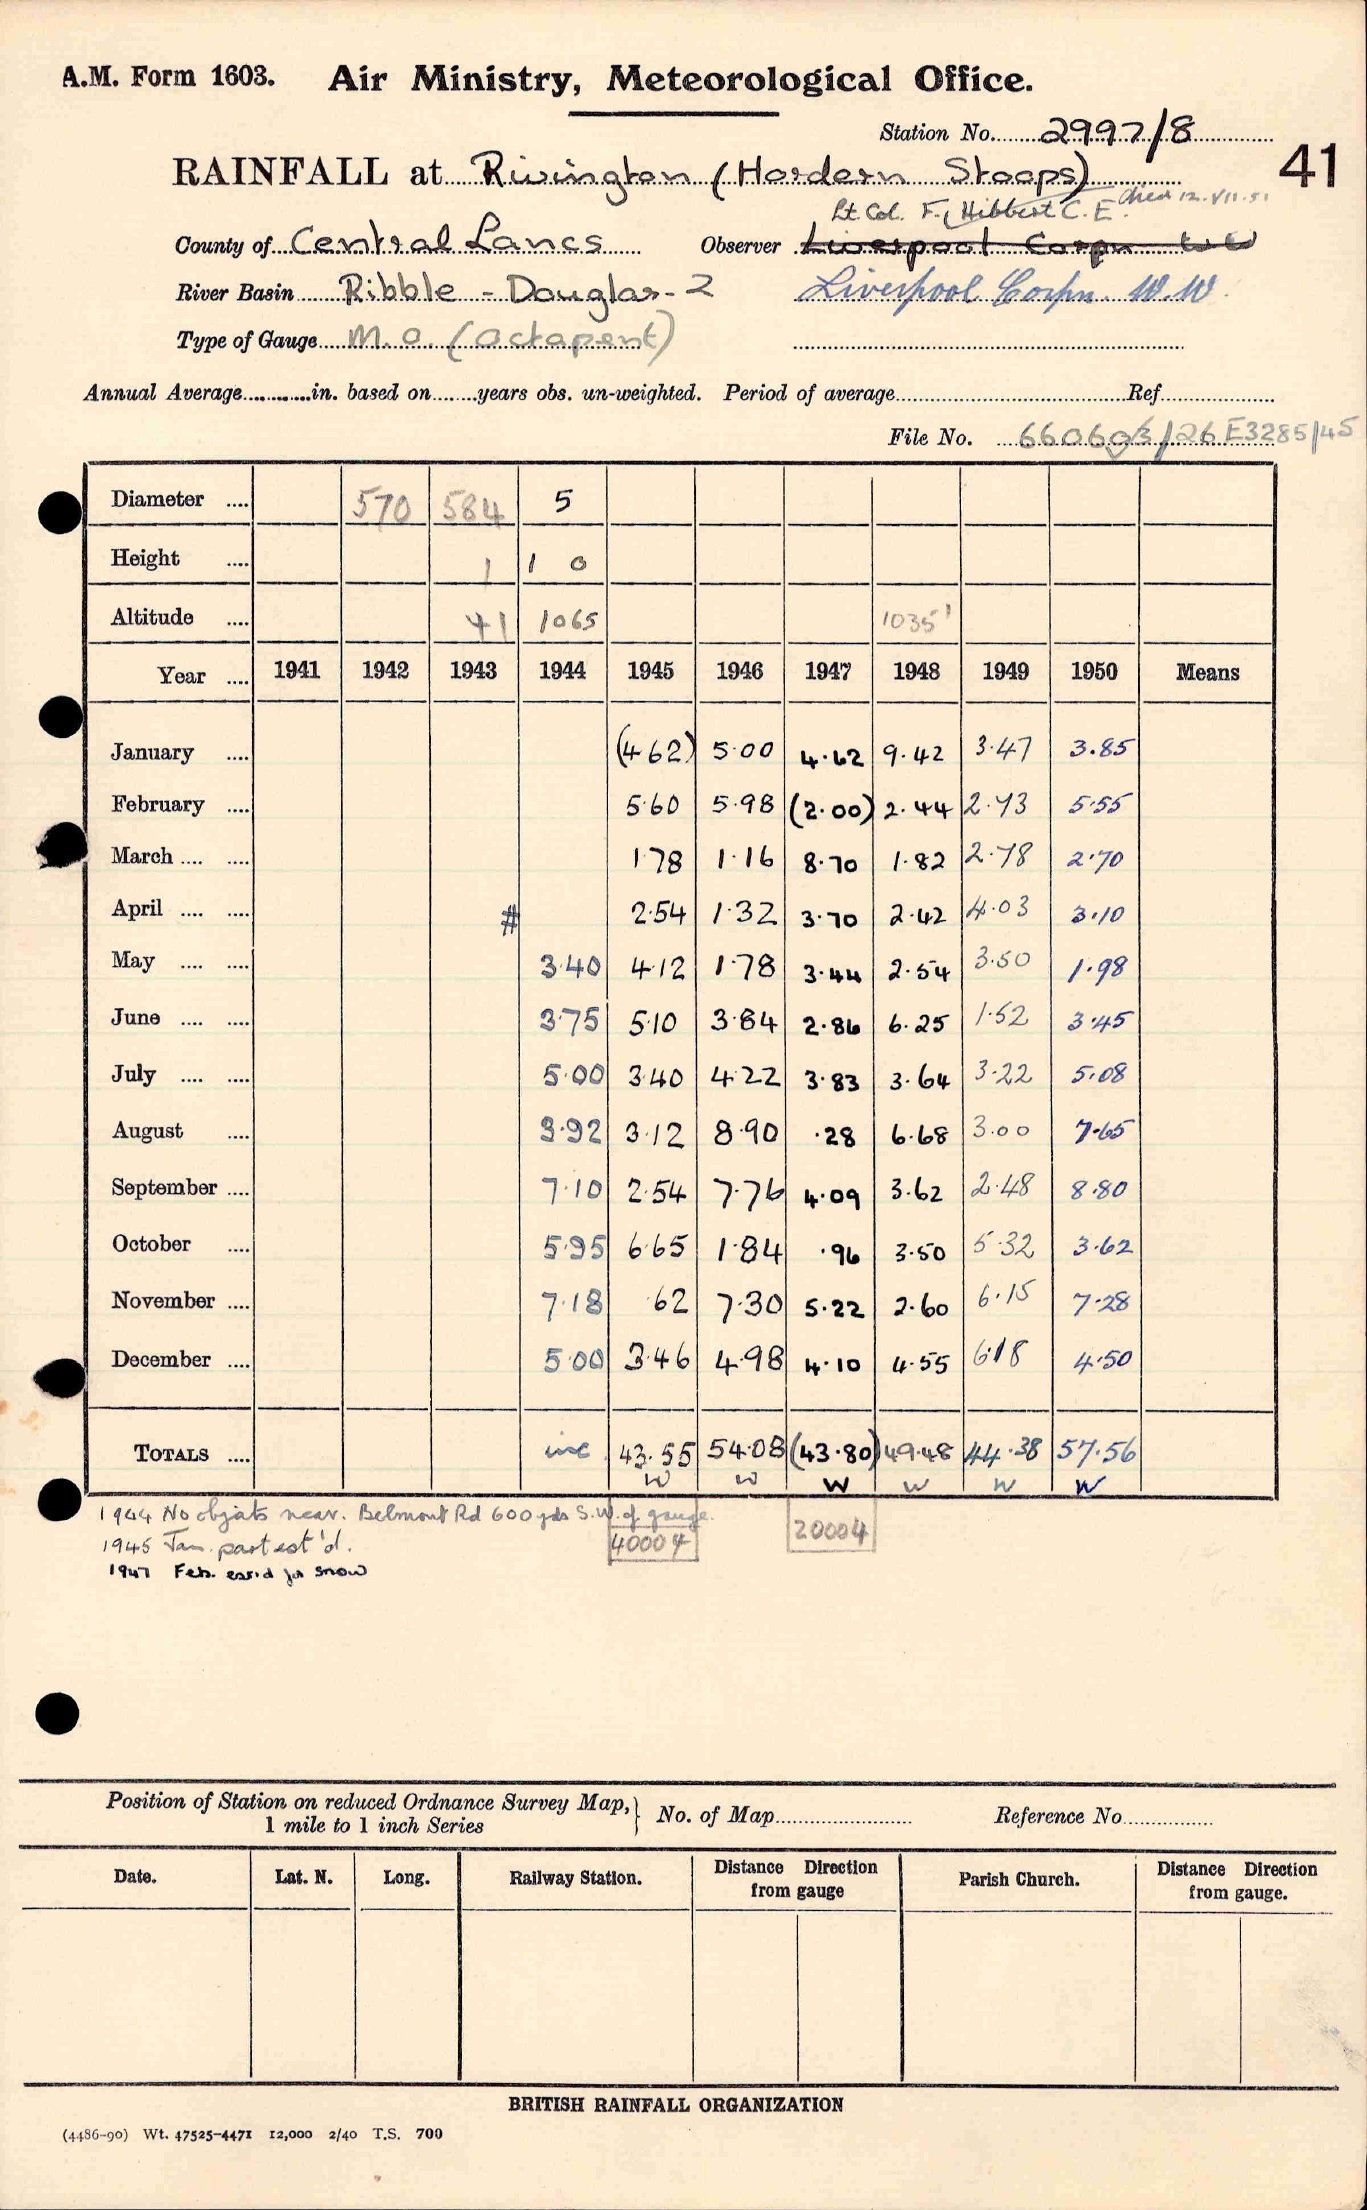 A.M. Form 1603. Air Ministry, Meteorological Office.
Station No. 2997/8
41
RAINFALL at Rivington (Hordern Stoops)
Lt. Col. F. Hibbert C.E. died 12.VII.51
County of Central Lancs Observer Liverpool Corpn W W
River Basin Ribble - Douglas - 2 Liverpool Corpn. W.W.
Type of Gauge M.O. (Octapent)
Annual Average in. based on years obs. un-weighted. Period of average Ref.
File No. E3285/45
Diameter .... 570 584 5
Height .... 1 1 0
Altitude .... 41 1065 1035'
Year .... 1941 1942 1943 1944 1945 1946 1947 1948 1949 1950 Means
January .... (4 62) 5·00 4·62 9·42 3·47 3.85
February .... 5 60 5·98 (2·00) 2·44 2·73 5·55
March .... .... 1·78 1·16 8·70 1·82 2·78 2·70
April .... .... # 2·54 1·32 3·70 2·42 4·03 3·10
May .... .... 3·40 4·12 1·78 3·44 2·54 3·50 1·98
June .... .... 3·75 5·10 3·84 2·86 6·25 1·52 3·45
July .... .... 5·00 3·40 4·22 3·83 3·64 3·22 5·08
August .... 3·92 3·12 8·90 ·28 6·68 3·00 7·65
September .... 7·10 2·54 7·76 4·09 3·62 2·48 8·80
October .... 5·95 6·65 1·84 ·96 3·50 5·32 3·62
November .... 7·18 ·62 7·30 5·22 2·60 6·15 7·28
December .... 5·00 3·46 4·98 4·10 4·55 6·18 4·50
TOTALS .... inc 43.55 54·08 (43·80) 49·48 44·38 57·56
W W W W W W
1944 No objects near. Belmont Rd 600 yds S.W. of gauge.
40004 20004
1945 Jan. part est'd.
1947 Feb. est'd for snow
Position of Station on reduced Ordnance Survey Map, 1 mile to 1 inch Series } No. of Map Reference No
Date. Lat. N. Long. Railway Station. Distance Direction from gauge Parish Church. Distance Direction from gauge.
BRITISH RAINFALL ORGANIZATION
(4486-90) Wt. 47525-4471 12,000 2/40 T.S. 700